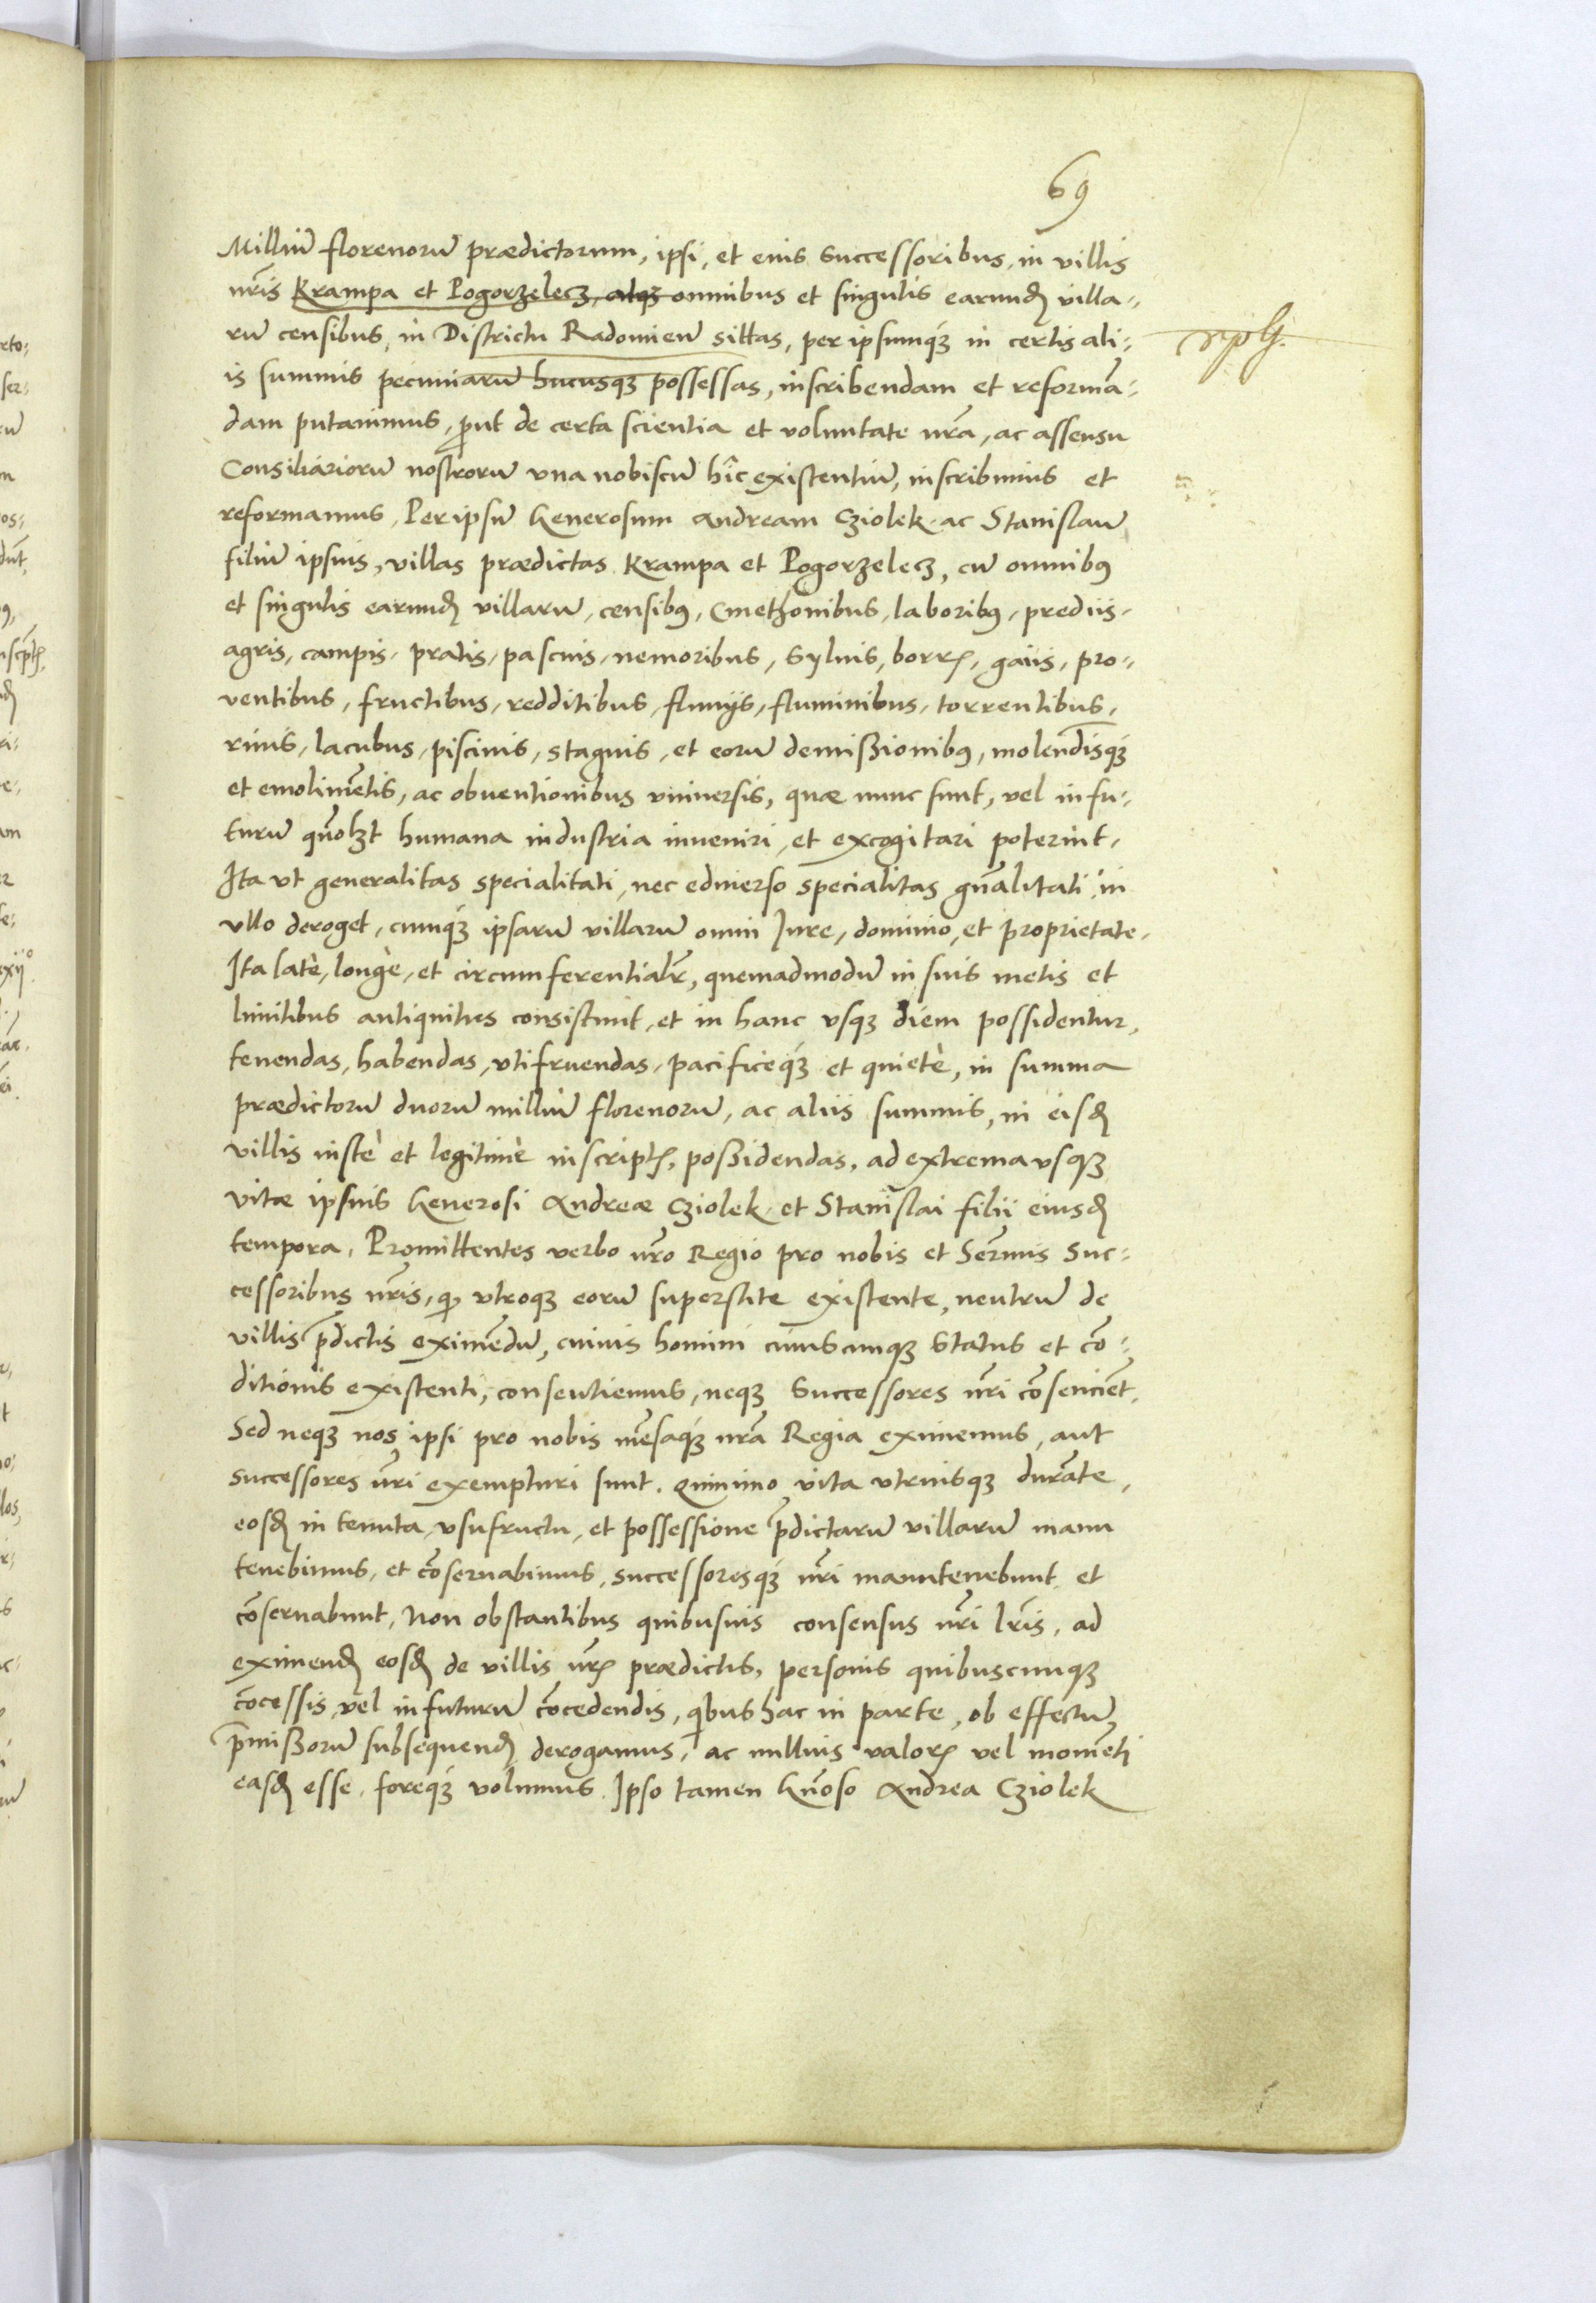 69
Milliū florenorū prædictorum, ipsi, et eius Successoribus, in villis
nr̃is Krampa et Pogorzelecz, atqȝ omnibus et singulis earundꝫ villa-
rū censibus, in Districtu Radomien̄ sittas, per ipsumqȝ́ in certis ali-
is summis pecuniarū hucusqȝ possessas, inscribendam et reformā-
dam putauimus, ꝓut de certa scientia et voluntate nr̃a, ac assensu
Consiliariorū nostrorū vna nobiscū hîc existentiū, inscribimus et
reformamus, Per ipsū Generosum Andream Cziolek ac Stanislaū
filiū ipsius, villas prædictas Krampa et Pogorzelecz, cū omnibꝰ
et singulis earundꝫ villarū, censibꝰ, Cmethonibus, laboribꝰ, prediis,
agris, campis, pratis, pascuis, nemoribus, Syluis, borrꝭ, gaiis, pro-
ventibus, fructibus, redditibus, fluuijs, fluminibus, torrentibus,
riuis, lacubus, piscinis, stagnis, et eorū demißionibꝰ, molendīsqȝ́
et emolimētis, ac obuentionibus vniuersis, quæ nunc sunt, vel in fu-
turū quōlꝫt humana industria inueniri, et excogitari poterint,
Ita vt generalitas specialitati, nec eduierso specialitas gn̄alitati in
vllo deroget, cumqȝ́ ipsarū villarū omni Iure, dominio, et proprietate,
Ita latè, longè, et circumferentialr̃, quemadmodū in suis metis et
limitibus antiquitus consistunt, et in hanc vsqȝ diem possidentur,
tenendas, habendas, vtifruendas, pacificeqȝ́ et quietè, in summa
prædictorū duorū milliū florenorū, ac aliis summis, in eisdꝫ
villis iustè et legitimè inscriptꝭ, poßidendas, ad extrema vsqȝ
vitæ ipsius Generosi Andreæ Cziolek et Stanislai filii eiusdꝫ
tempora, Promittentes verbo nr̃o Regio pro nobis et Ser̃mis Suc-
cessoribus nr̃is, qꝫ vtroqȝ eorū superstite existente, neutrū de
villis p̄dictis eximēdū, cuiuis homini cuiuscunqȝ Status et cō-
ditionis existenti, consentiemus, neqȝ Successores nr̃i cōsenciēt,
Sed neqȝ nos ipsi pro nobis mēsaqȝ́ nr̃a Regia eximemus, aut
successores nr̃i exempturi sunt. Quinimo vita vtriusqȝ durāte,
eosdꝫ in tenuta, vsufructu, et possessione p̄dictarū villarū manu
tenebimus, et cōseruabimus, successoresqȝ́ nr̃i manutenebunt et
cōseruabunt, Non obstantibus quibusuis consensus nr̃i lr̃is, ad
eximendꝫ eosdꝫ de villis nr̃ꝭ prædictis, personis quibuscunqȝ
cōcessis, vel in futurū cōcedendis, qibus hac in parte, ob effectū
p̄mißorū subsequendꝫ derogamus, ac nullius valorꝭ vel momēti
easdꝫ esse, foreqȝ́ volumus. Ipso tamen Gn̄oso Andrea Cziolek